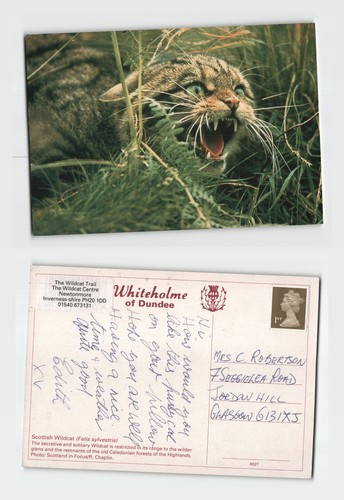 The Wildcat Trail
The Wildcat Centre
Newtonmore
Inverness-shire PH20 1DD
01540 673131
Whiteholme
of Dundee
1ST
Hi,
How would you
like this pussy cat
on your pillow
Hope you are well
Having a nice
time & weather
quite good
Edith
X X
MRS C ROBERTSON
7 SEGGIELEA ROAD
JORDON HILL
GLASGOW G131XJ
Scottish Wildcat (Felis sylvestris)
The secretive and solitary Wildcat is restricted in its range to the wilder
glens and the remnants of the old Caledonian forests of the Highlands.
Photo: Scotland in Focus/R. Chaplin.